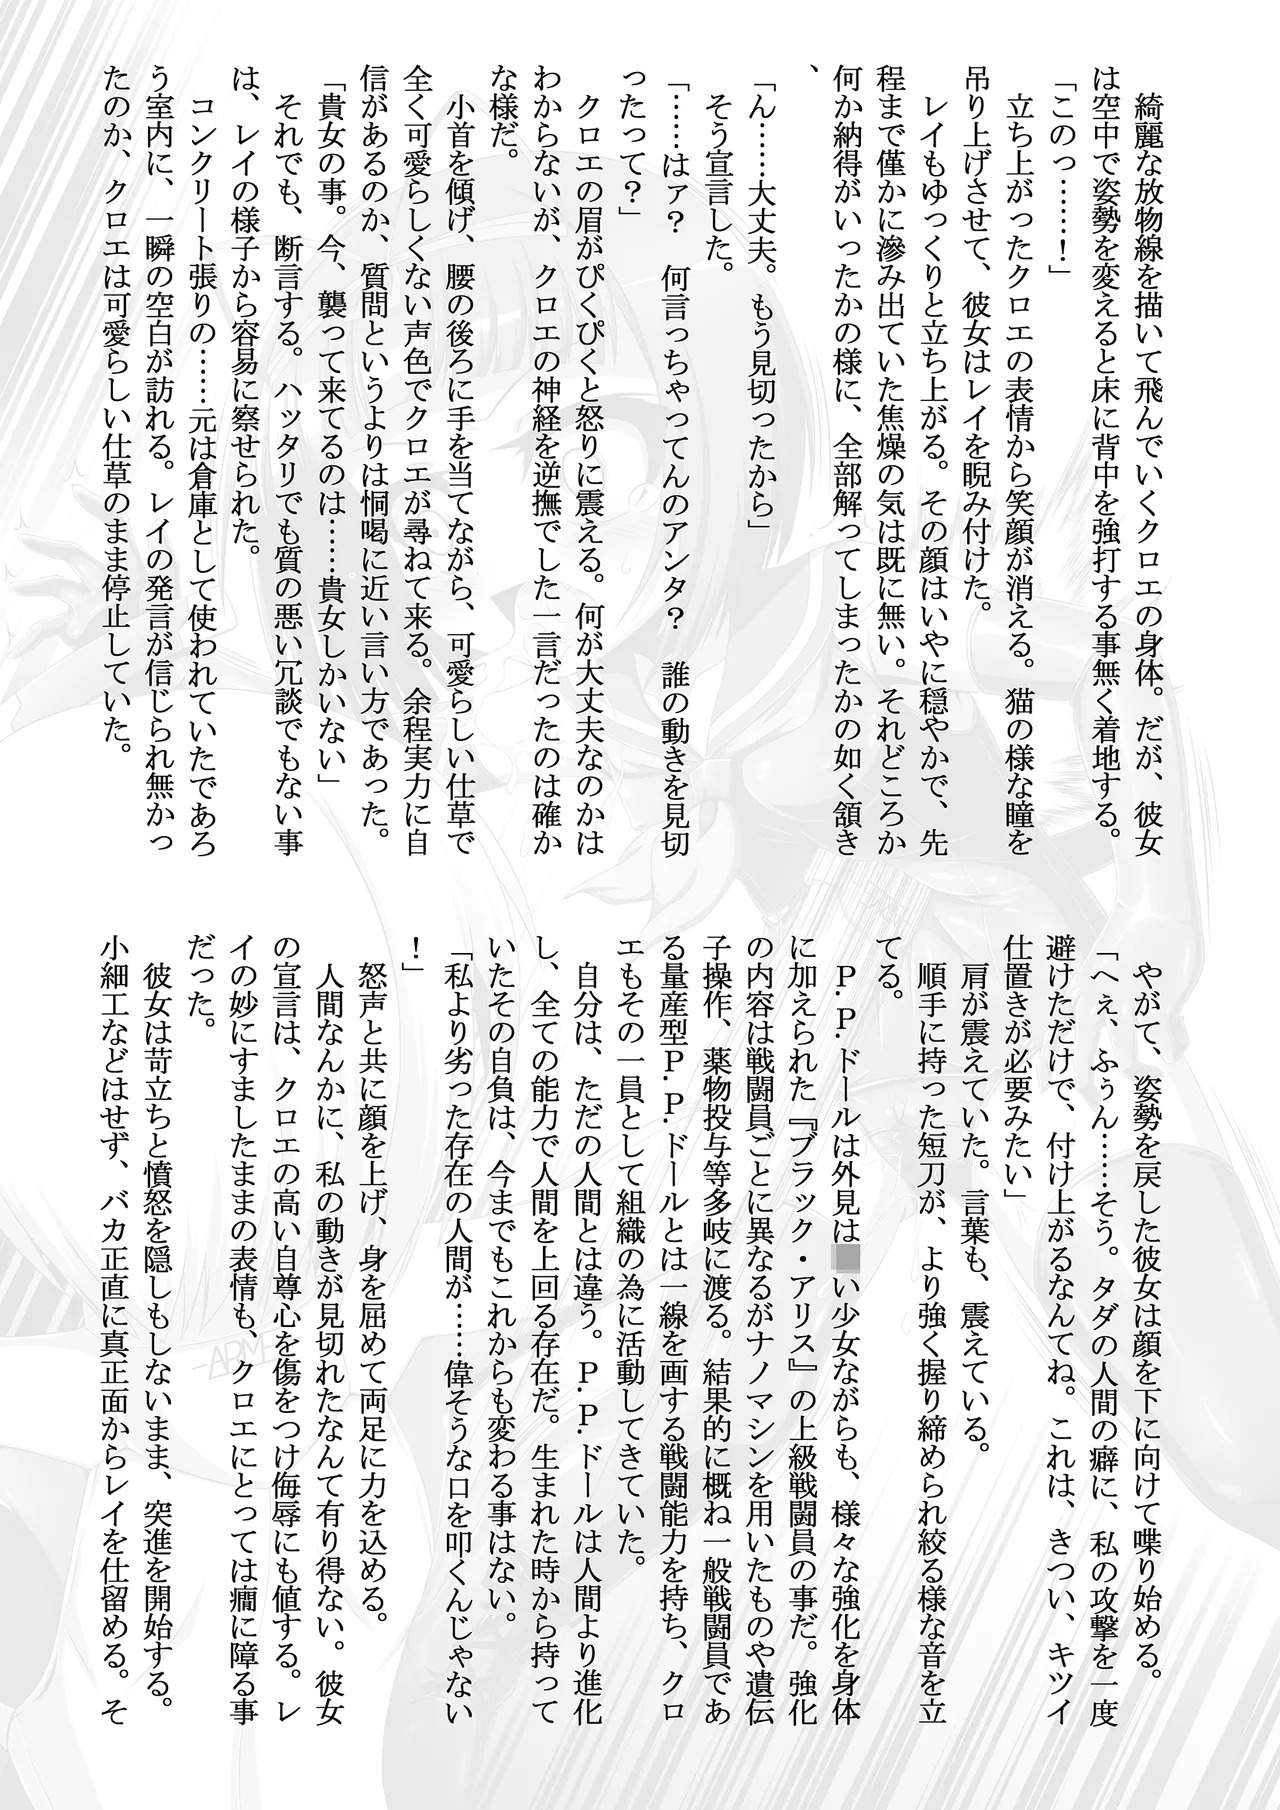 綺麗な放物線を描いて飛んでいくクロエの身体。だが、彼女
は空中で姿勢を変えると床に背中を強打する事無く着地する。
「このっ……！」
立ち上がったクロエの表情から笑顔が消える。猫の様な瞳を
吊り上げさせて、彼女はレイを睨み付けた。
レイもゆっくりと立ち上がる。その顔はいやに穏やかで、先
程まで僅かに滲み出ていた焦燥の気は既に無い。それどころか
何か納得がいったかの様に、全部解ってしまったかの如く頷き
、
「ん……大丈夫。もう見切ったから」
そう宣言した。
「……はァ？　何言っちゃってんのアンタ？　誰の動きを見切
ったって？」
クロエの眉がぴくぴくと怒りに震える。何が大丈夫なのかは
わからないが、クロエの神経を逆撫でした一言だったのは確か
な様だ。
小首を傾げ、腰の後ろに手を当てながら、可愛らしい仕草で
全く可愛らしくない声色でクロエが尋ねて来る。余程実力に自
信があるのか、質問というよりは恫喝に近い言い方であった。
「貴女の事。今、襲って来てるのは……貴女しかいない」
それでも、断言する。ハッタリでも質の悪い冗談でもない事
は、レイの様子から容易に察せられた。
コンクリート張りの……元は倉庫として使われていたであろ
う室内に、一瞬の空白が訪れる。レイの発言が信じられ無かっ
たのか、クロエは可愛らしい仕草のまま停止していた。
やがて、姿勢を戻した彼女は顔を下に向けて喋り始める。
「へぇ、ふぅん……そう。タダの人間の癖に、私の攻撃を一度
避けただけで、付け上がるなんてね。これは、きつい、キツイ
仕置きが必要みたい」
肩が震えていた。言葉も、震えている。
順手に持った短刀が、より強く握り締められ絞る様な音を立
てる。
P.P.ドールは外見は い少女ながらも、様々な強化を身体
に加えられた『ブラック・アリス』の上級戦闘員の事だ。強化
の内容は戦闘員ごとに異なるがナノマシンを用いたものや遺伝
子操作、薬物投与等多岐に渡る。結果的に概ね一般戦闘員であ
る量産型P.P.ドールとは一線を画する戦闘能力を持ち、クロ
エもその一員として組織の為に活動してきていた。
自分は、ただの人間とは違う。P.P.ドールは人間より進化
し、全ての能力で人間を上回る存在だ。生まれた時から持って
いたその自負は、今までもこれからも変わる事はない。
「私より劣った存在の人間が……偉そうな口を叩くんじゃない
！」
怒声と共に顔を上げ、身を屈めて両足に力を込める。
人間なんかに、私の動きが見切れたなんて有り得ない。彼女
の宣言は、クロエの高い自尊心を傷をつけ侮辱にも値する。レ
イの妙にすましたままの表情も、クロエにとっては癇に障る事
だった。
彼女は苛立ちと憤怒を隠しもしないまま、突進を開始する。
小細工などはせず、バカ正直に真正面からレイを仕留める。そ